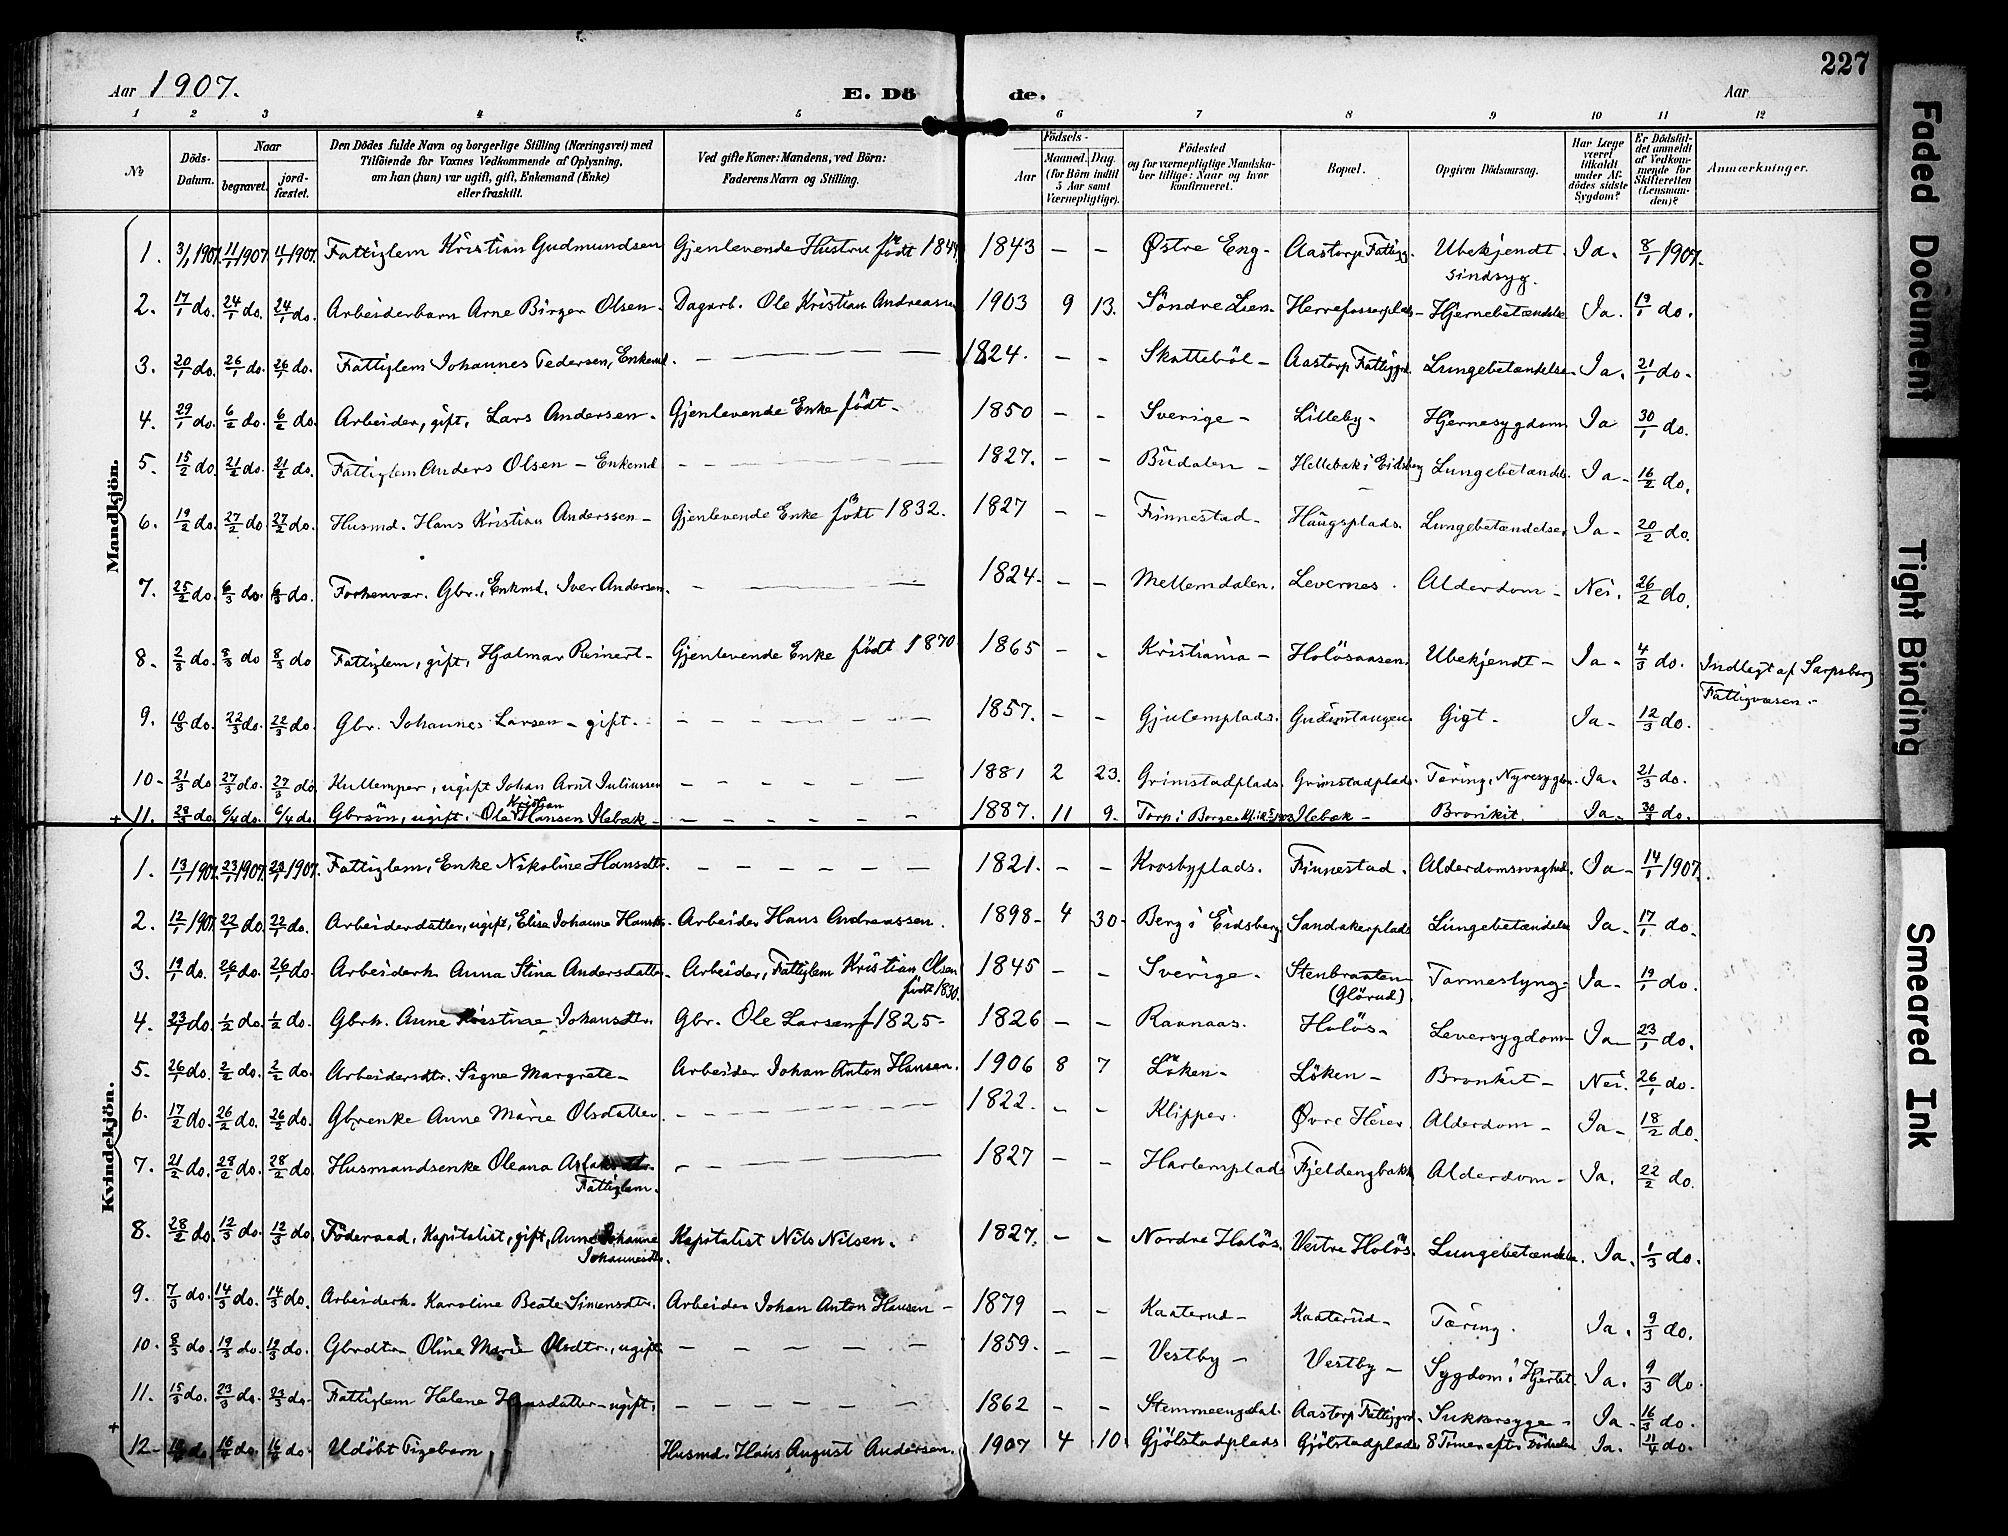 227
Aar 1907. E. Dö de. Aar
1 2 3 4 5 6 7 8 9 10 11 12
№
Döds-Datum.
Naar begravet. jordfæstet.
Den Dödes fulde Navn og borgerlige Stilling (Næringsvei) med
Tilföiende for Voxnes Vedkommende af Oplysning,
om han (hun) var ugift, gift, Enkemand (Enke)
eller fraskilt.
Ved gifte Koner: Mandens, ved Börn:
Faderens Navn og Stilling.
Födsels-
Aar Maaned. Dag.
(for Börn indtil
5 Aar samt
Værnepligtige).
Födested
og for værnepligtige Mandska-
ber tillige: Naar og hvor
konfirmeret.
Bopæl.
Opgiven Dödsaarsag.
Har Læge
været
tilkaldt
under Af-
dödes sidste
Sygdom?
Er Dödsfal-
det anmeldt
af Vedkom-
mende for
Skifteretten
(Lensman-
den)?
Anmærkninger.
Mandkjön.
1. 3/1 1907. 11/1 1907 11/1 1907. Fattiglem Kristian Gudmundsen Gjenlevende Hustru født 1844 1843 – – Østre Eng – Aastorp Fattigg. Ubekjendt. Ja. 8/1 1907.
Sindsyg.
2. 17/1 do. 24/1 do. 24/1 do. Arbeiderbarn Arne Birger Olsen. Dagarb. Ole Kristian Andreassen 1903 9 13. Søndre Lien. Herrefosserplads – Hjernebetændelse Ja. 19/1 do.
3. 20/1 do. 26/1 do. 26/1 do. Fattiglem Johannes Pedersen, Enkemd. – – – – – 1824. – – Skattebøl – Aastorp Fattiggrd. Lungebetændelse – Ja. 21/1 do.
4. 29/1 do. 6/2 do. 6/2 do. Arbeider, gift, Lars Andersen – Gjenlevende Enke født – 1850 – – Sverige – Lilleby – Hjernesygdom Ja 30/1 do.
5. 15/2 do. 21/2 do. 21/2 do. Fattiglem Anders Olsen – Enkemd. – – – – – 1827. – – Budalen – Hellebæk i Eidsberg Lungebetændelse Ja – 16/2 do.
6. 19/2 do. 27/2 do 27/2 do. Husmd. Hans Kristian Anderssen – Gjenlevende Enke født 1832. 1827 – – Finnestad – Haugsplads. Lungebetændelse. Ja – 20/2 do.
7. 25/2 do. 6/3 do. 6/3 do. Forhenvær. Gbr., Enkmd. Iver Andersen. – – – 1824. – – Mellemdalen. Levernes. Alderdom – Nei. 26/2 do.
8. 2/3 do. 8/3 do 8/3 do Fattiglem, gift, Hjalmar Reinert – Gjenlevende Enke født 1870. 1865 – – Kristiania – Holøsaasen. Ubekjendt – Ja – 4/3 do. Indlagt af Sarpsborg
Fattigvæsen –
9. 10/3 do. 22/3 do. 22/3 do. Gbr. Johannes Larsen – gift. – – – – – 1857. – – Gjulemplads. Gudimtangen Gigt – Ja – 12/3 do.
10 – 21/3 do 27/3 do. 27/3 do Kullemper, ugift Johan Arnt Juliussen – – – – – 1881 2 23. Grimstadplads. Grimstadplads. Tæring, Nyresygdom. Ja. 21/3 do.
+ 11. 28/3 do. 6/4 do. 6/4 do. Gbrsøn, ugift. Ole Kristian Hansen Ilebæk – – – – – 1887. 11 9. Torp i Borge. Ilebæk – Bronkit. Ja – 30/3 do.
Kvindekjön.
1. 13/1 1907. 23/1 1907. 23/1 1907. Fattiglem, Enke Nikoline Hansdtr. – – – – – 1821. – – Krosbyplads. Finnestad. Alderdomssvaghed. Ja – 14/1 1907.
2. 12/1 1907 22/1 do. 22/1 do. Arbeiderdatter, ugift, Elise Johanne Hansdtr – Arbeider Hans Andreassen. 1898 – 4 30 – Berg i Eidsberg. Sandakerplads Lungebetændelse Ja – 17/1 do.
3. 19/1 do. 26/1 do. 26/1 do. Arbeiderk. Anna Stina Andersdatter – Arbeider, Fattiglem Kristian Olsen 1845 – – Sverige – Stenbraaten Tarmeslyng – Ja – 19/1 do.
født 1830. (Glørud).
4. 23/1 do. 1/2 do. 1/2 do. Gbrk. Anne Kristine Johansdtr. Gbr. Ole Larsen f 1825 – 1826 – – Ravnaas. Holøs – Leversygdom Ja – 23/1 do.
5. 26/1 do. 2/2 do. 2/2 do. Arbeidersdtr. Signe Margrete – Arbeider Johan Anton Hansen. 1906 8 7 Løken – Løken – Bronkit – Nei. 26/1 do.
6. 17/2 do. 26/2 do. 26/2 do. Gbrenke Anne Marie Olsdatter – – – – – 1822. – – Klipper. Øvre Heier. Alderdom – Ja – 18/2 do.
7. 21/2 do. 28/2 do. 28/2 do. Husmandsenke Oleana – – – – 1827 – – Harlemplads Fjeldengbakk Alderdom – Ja. 22/2 do.
Fattiglem.
8. 28/2 do. 12/3 do. 12/3 do. Føderaad, Kapitalist, gift, Anne Johanne Kapitalist Nils Nilsen. 1827. – – Nordre Holøs. Vestre Holøs. Lungebetændelse. Ja. 1/3 do.
Johannesdtr.
9. 7/3 do. 14/3 do. 14/3 do. Arbeiderk. Karoline Beate Simensdtr. Arbeider Johan Anton Hansen – 1879 – – Kaaterud – Kaaterud – Tæring. Ja. 9/3 do.
10. 8/3 do. 19/3 do. 19/3 do. Gbrdtr – Oline Marie Olsdtr., ugift – – – – – 1859. – – Vestby – Vestby – Sygdom i Hjertet. Ja. 9/3 do.
11. 15/3 do. 23/3 do. 23/3 do. Fattiglem Helene Hansdatter – ugift. – – – – – 1862 – – Stemmeengdal. Aastorp Fattiggrd. Sukkersyge – Ja – 16/3 do.
+ 12 – do. 16/4 do. 16/4 do. Udøbt Pigebarn Husmd. Hans August Andersen. 1907 4 10. Gjølstadplads Gjølstadplads 8 Timer efter Fødselen Ja. 11/4 do.
Faded Document
Tight Binding
Smeared Ink